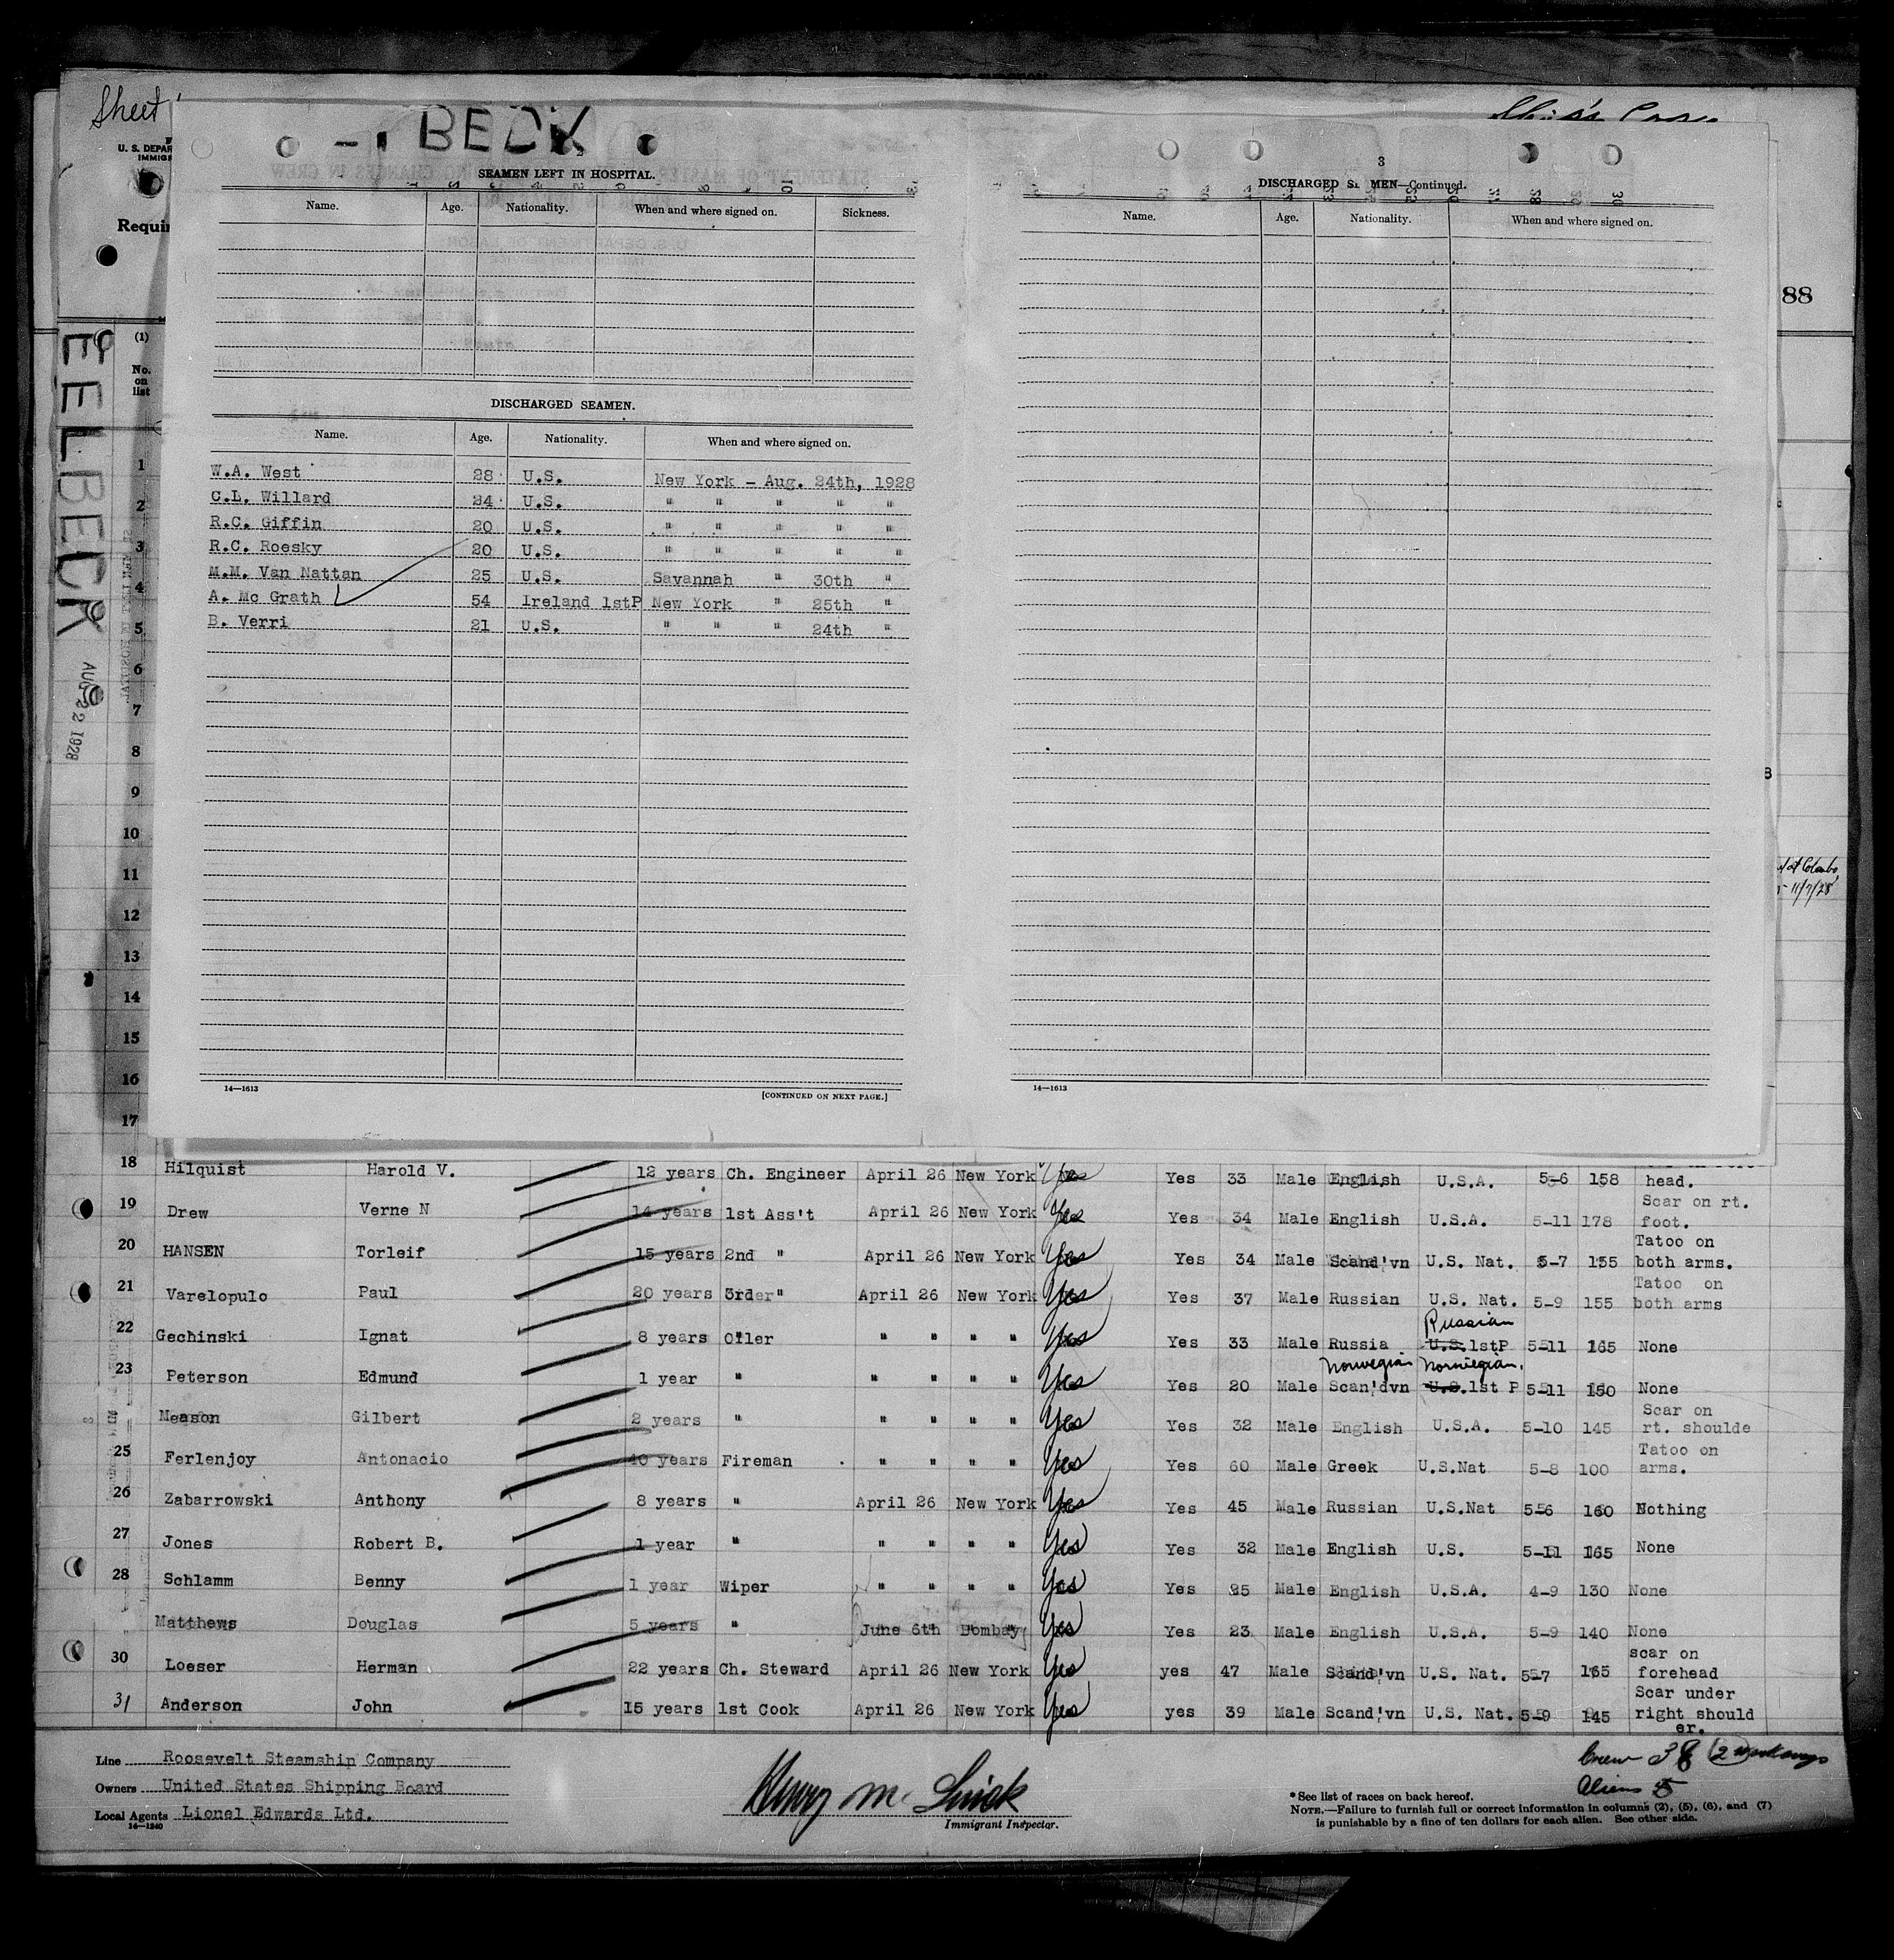 Sheet
BECK
U. S. DEPAR
IMMIG
Requir
88
EELBECK
AUG 22 1928
3
SEAMEN LEFT IN HOSPITAL.
Name. Age. Nationality. When and where signed on. Sickness.
DISCHARGED SEAMEN.
Name. Age. Nationality. When and where signed on.
W.A. West 28 U.S. New York - Aug. 24th, 1928
C.L. Willard 24 U.S. " " " " "
R.C. Giffin 20 U.S. " " " " "
R.C. Roesky 20 U.S. " " " " "
M.M. Van Nattan 25 U.S. Savannah " 30th "
A. Mc Grath 54 Ireland 1stP New York " 25th "
B. Verri 21 U.S. " " " 24th "
14—1613 [CONTINUED ON NEXT PAGE.]
DISCHARGED SE MEN—Continued.
Name. Age. Nationality. When and where signed on.
14—1613
(1)
No. on list
1
2
3
4
5
6
7
8
9
10
11
12
13
14
15
16
17
11/7/28
18 Hilquist Harold V. 12 years Ch. Engineer April 26 New York Yes Yes 33 Male English U.S.A. 5-6 158 head.
19 Drew Verne N 14 years 1st Ass't April 26 New York Yes Yes 34 Male English U.S.A. 5-11 178 Scar on rt. foot.
20 HANSEN Torleif 15 years 2nd " April 26 New York Yes Yes 34 Male Scand'vn U.S. Nat. 5-7 155 Tatoo on both arms.
21 Varelopulo Paul 20 years 3rd " April 26 New York Yes Yes 37 Male Russian U.S. Nat. 5-9 155 Tatoo on both arms
22 Gechinski Ignat 8 years Oiler " " " " Yes Yes 33 Male Russia Russian U.S. 1stP 5-11 165 None
23 Peterson Edmund 1 year " " " " " Yes Yes 20 Male Norwegian Scan'dvn Norwegian. U.S. 1st P 5-11 150 None
Meason Gilbert 2 years " " " " " Yes Yes 32 Male English U.S.A. 5-10 145 Scar on rt. shoulde
25 Ferlenjoy Antonacio 40 years Fireman " " " " Yes Yes 60 Male Greek U.S.Nat 5-8 100 Tatoo on arms.
26 Zabarrowski Anthony 8 years " April 26 New York Yes Yes 45 Male Russian U.S.Nat 5-6 160 Nothing
27 Jones Robert B. 1 year " " " " " Yes Yes 32 Male English U.S. 5-11 165 None
28 Schlamm Benny 1 year Wiper " " " " Yes Yes 25 Male English U.S.A. 4-9 130 None
Matthews Douglas 5 years " June 6th Bombay Yes Yes 23 Male English U.S.A. 5-9 140 None
30 Loeser Herman 22 years Ch. Steward April 26 New York Yes yes 47 Male Scand'vn U.S. Nat. 5-7 165 scar on forehead
31 Anderson John 15 years 1st Cook April 26 New York Yes yes 39 Male Scand'vn U.S. Nat. 5-9 145 Scar under right should er.
Line Roosevelt Steamship Company
Owners United States Shipping Board
Local Agents Lionel Edwards Ltd.
14—1240
Immigrant Inspector.
Crew 38
Aliens 5
*See list of races on back hereof.
NOTE.—Failure to furnish full or correct information in columns (2), (5), (6), and (7)
is punishable by a fine of ten dollars for each alien. See other side.